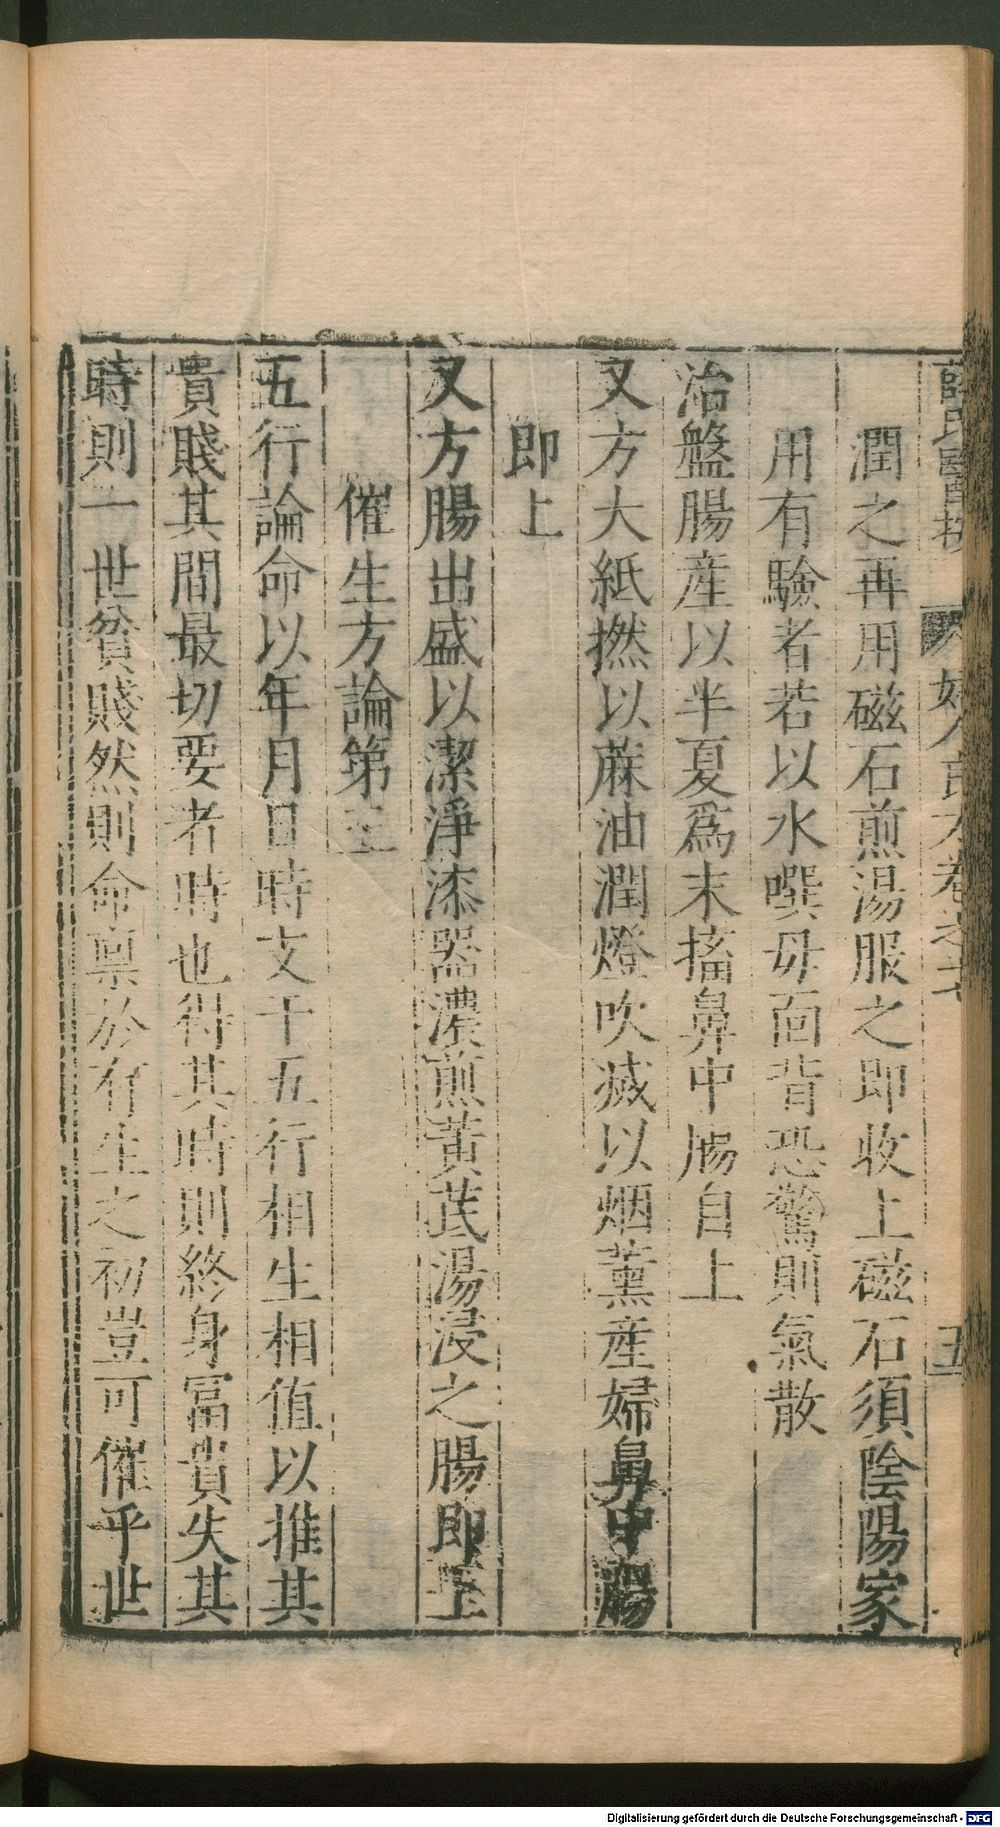 薛氏醫按 婦人良方卷之七 五
潤之再用磁石煎湯服之即收上磁石須陰陽家
用有驗者若以水噀母面背恐驚則氣散
治盤腸産以半夏爲末搐鼻中腸自上
又方大紙撚以蔴油潤燈吹滅以烟薰産婦鼻中腸
即上
又方腸出盛以潔淨漆器濃煎黃芪湯浸之腸即上
催生方論第三
五行論命以年月日時支干五行相生相值以推其
貴賤其間最切要者時也得其時則終身冨貴失其
時則一世貧賤然則命禀於有生之初豈可催乎世
Digitalisierung gefördert durch die Deutsche Forschungsgemeinschaft - DFG